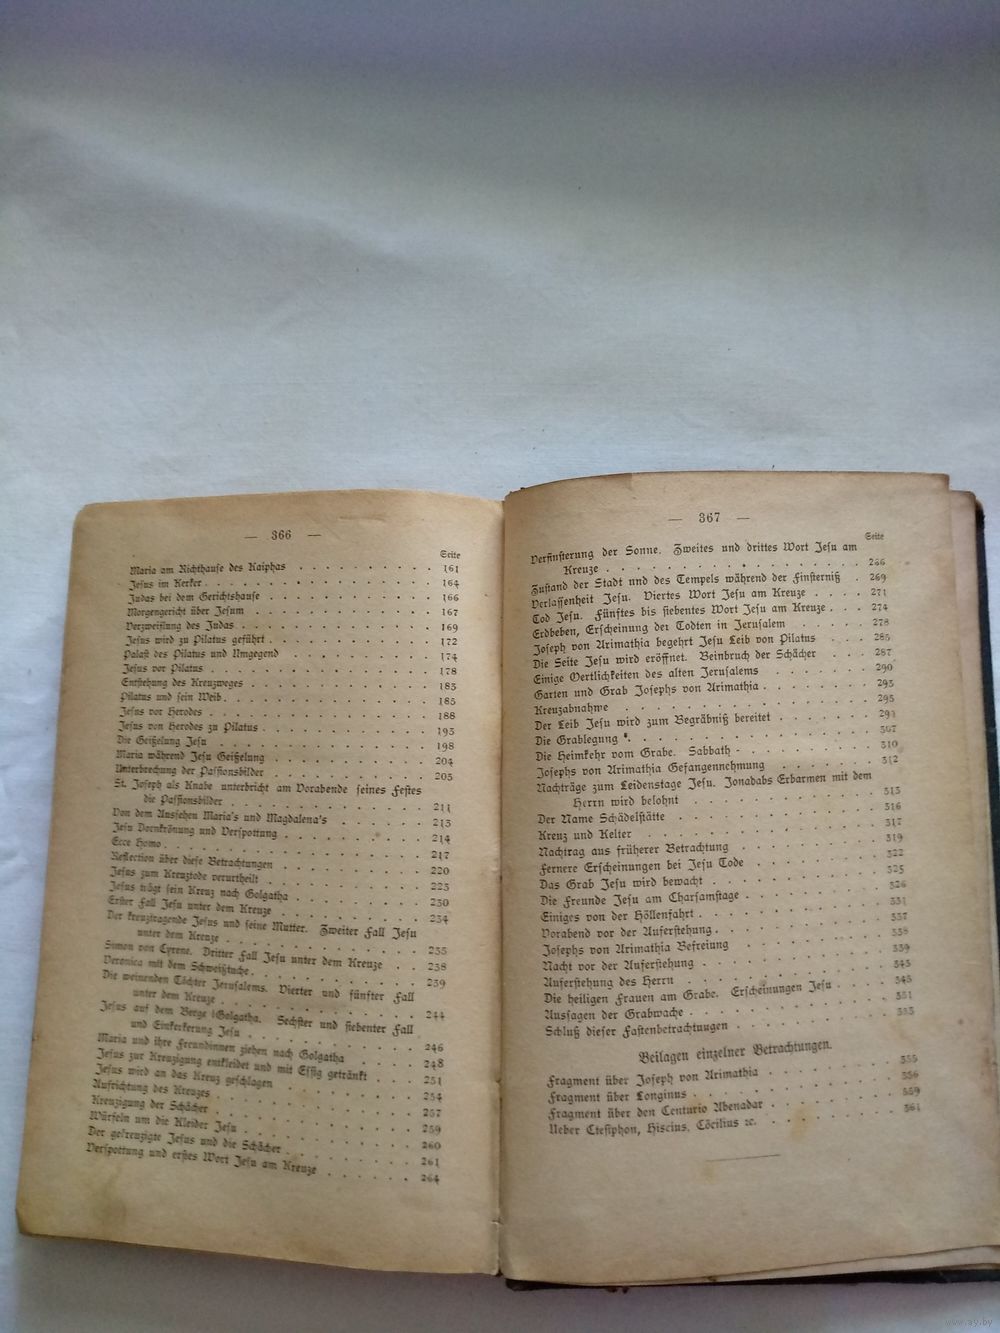 — 366 —
Seite
Maria am Richthause des Kaiphas . . . . . . . . . . 161
Jesus im Kerker . . . . . . . . . . 164
Judas bei dem Gerichtshause . . . . . . . . . . 166
Morgengericht über Jesum . . . . . . . . . . 167
Verzweiflung des Judas . . . . . . . . . . 169
Jesus wird zu Pilatus geführt . . . . . . . . . . 172
Palast des Pilatus und Umgegend . . . . . . . . . . 174
Jesus vor Pilatus . . . . . . . . . . 178
Entstehung des Kreuzweges . . . . . . . . . . 183
Pilatus und sein Weib . . . . . . . . . . 185
Jesus vor Herodes . . . . . . . . . . 188
Jesus von Herodes zu Pilatus . . . . . . . . . . 193
Die Geißelung Jesu . . . . . . . . . . 198
Maria während Jesu Geißelung . . . . . . . . . . 204
Unterbrechung der Passionsbilder . . . . . . . . . . 205
St. Joseph als Knabe unterbricht am Vorabende seines Festes
die Passionsbilder . . . . . . . . . . 211
Von dem Aussehen Maria's und Magdalena's . . . . . . 213
Jesu Dornkrönung und Verspottung . . . . . . . . 214
Ecce Homo . . . . . . . . . . 217
Reflection über diese Betrachtungen . . . . . . . . 220
Jesus zum Kreuztode verurtheilt . . . . . . . . 223
Jesus trägt sein Kreuz nach Golgatha . . . . . . . . 230
Erster Fall Jesu unter dem Kreuze . . . . . . . . 234
Der kreuztragende Jesus und seine Mutter. Zweiter Fall Jesu
unter dem Kreuze . . . . . . . . . . 235
Simon von Cyrene. Dritter Fall Jesu unter dem Kreuze . . 238
Veronica mit dem Schweißtuche . . . . . . . . . . 239
Die weinenden Töchter Jerusalems. Vierter und fünfter Fall
unter dem Kreuze . . . . . . . . . . 244
Jesus auf dem Berge Golgatha. Sechster und siebenter Fall
und Einkerkerung Jesu . . . . . . . . . . 246
Maria und ihre Freundinnen ziehen nach Golgatha . . . . 248
Jesus zur Kreuzigung entkleidet und mit Essig getränkt . . . 251
Jesus wird an das Kreuz geschlagen . . . . . . . . 254
Aufrichtung des Kreuzes . . . . . . . . . . 257
Kreuzigung der Schächer . . . . . . . . . . 259
Würfeln um die Kleider Jesu . . . . . . . . . . 260
Der gekreuzigte Jesus und die Schächer . . . . . . . 261
Verspottung und erstes Wort Jesu am Kreuze . . . . . . 264
— 367 —
Seite
Verfinsterung der Sonne. Zweites und drittes Wort Jesu am
Kreuze . . . . . . . . . . 266
Zustand der Stadt und des Tempels während der Finsterniß 269
Verlassenheit Jesu. Viertes Wort Jesu am Kreuze . . . . 271
Tod Jesu. Fünftes bis siebentes Wort Jesu am Kreuze . . . 274
Erdbeben, Erscheinung der Todten in Jerusalem . . . . 278
Joseph von Arimathia begehrt Jesu Leib von Pilatus . . . 285
Die Seite Jesu wird eröffnet. Beinbruch der Schächer . . . 287
Einige Oertlichkeiten des alten Jerusalems . . . . . 290
Garten und Grab Josephs von Arimathia . . . . . . 293
Kreuzabnahme . . . . . . . . . . 295
Der Leib Jesu wird zum Begräbniß bereitet . . . . .
Die Grablegung . . . . . . . . . . 307
Die Heimkehr vom Grabe. Sabbath . . . . . . . 310
Josephs von Arimathia Gefangennehmung . . . . . . 312
Nachträge zum Leidenstage Jesu. Jonadabs Erbarmen mit dem
Herrn wird belohnt . . . . . . . . . . 313
Der Name Schädelstätte . . . . . . . . . . 316
Kreuz und Kelter . . . . . . . . . . 317
Nachtrag aus früherer Betrachtung . . . . . . . 319
Fernere Erscheinungen bei Jesu Tode . . . . . . 322
Das Grab Jesu wird bewacht . . . . . . . . 325
Die Freunde Jesu am Charsamstage . . . . . . . 326
Einiges von der Höllenfahrt . . . . . . . . 331
Vorabend vor der Auferstehung . . . . . . . . 337
Josephs von Arimathia Befreiung . . . . . . . 338
Nacht vor der Auferstehung . . . . . . . . 339
Auferstehung des Herrn . . . . . . . . 343
Die heiligen Frauen am Grabe. Erscheinungen Jesu . . . 345
Aussagen der Grabwache . . . . . . . . 351
Schluß dieser Fastenbetrachtungen . . . . . . . 353
Beilagen einzelner Betrachtungen.
Fragment über Joseph von Arimathia . . . . . . . 355
Fragment über Longinus . . . . . . . . 356
Fragment über den Centurio Abenadar . . . . . . 359
Ueber Ctesiphon, Hiscius, Cäcilius ꝛc. . . . . 361
www.ay.by